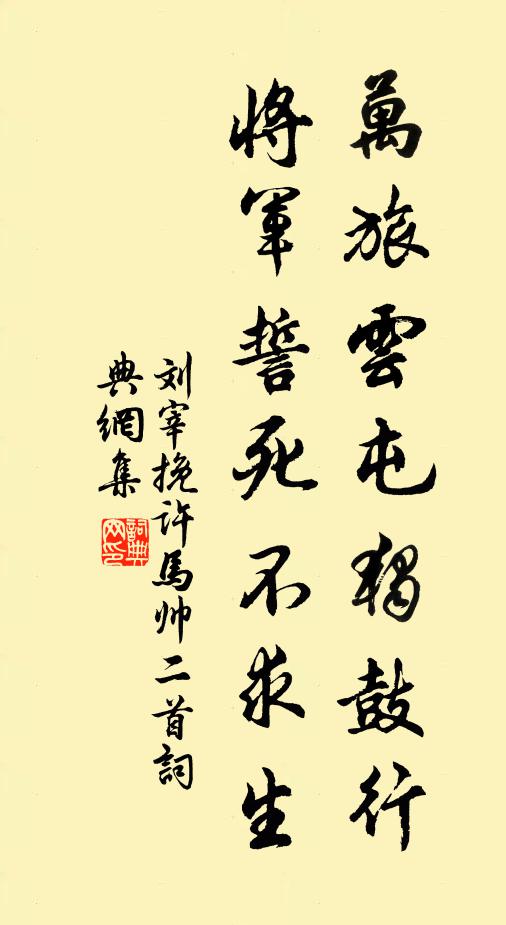 萬旅雲屯獨鼓行
將軍誓死不求生
刘宰挽许馬帅二首詞
典網集
詞典网印